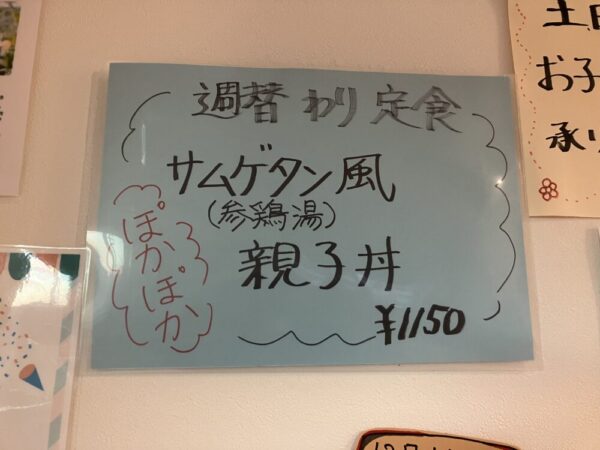 週替わり定食
サムゲタン風
(参鶏湯)
親子丼
ぽかぽか
¥1150
土日
お子
承り